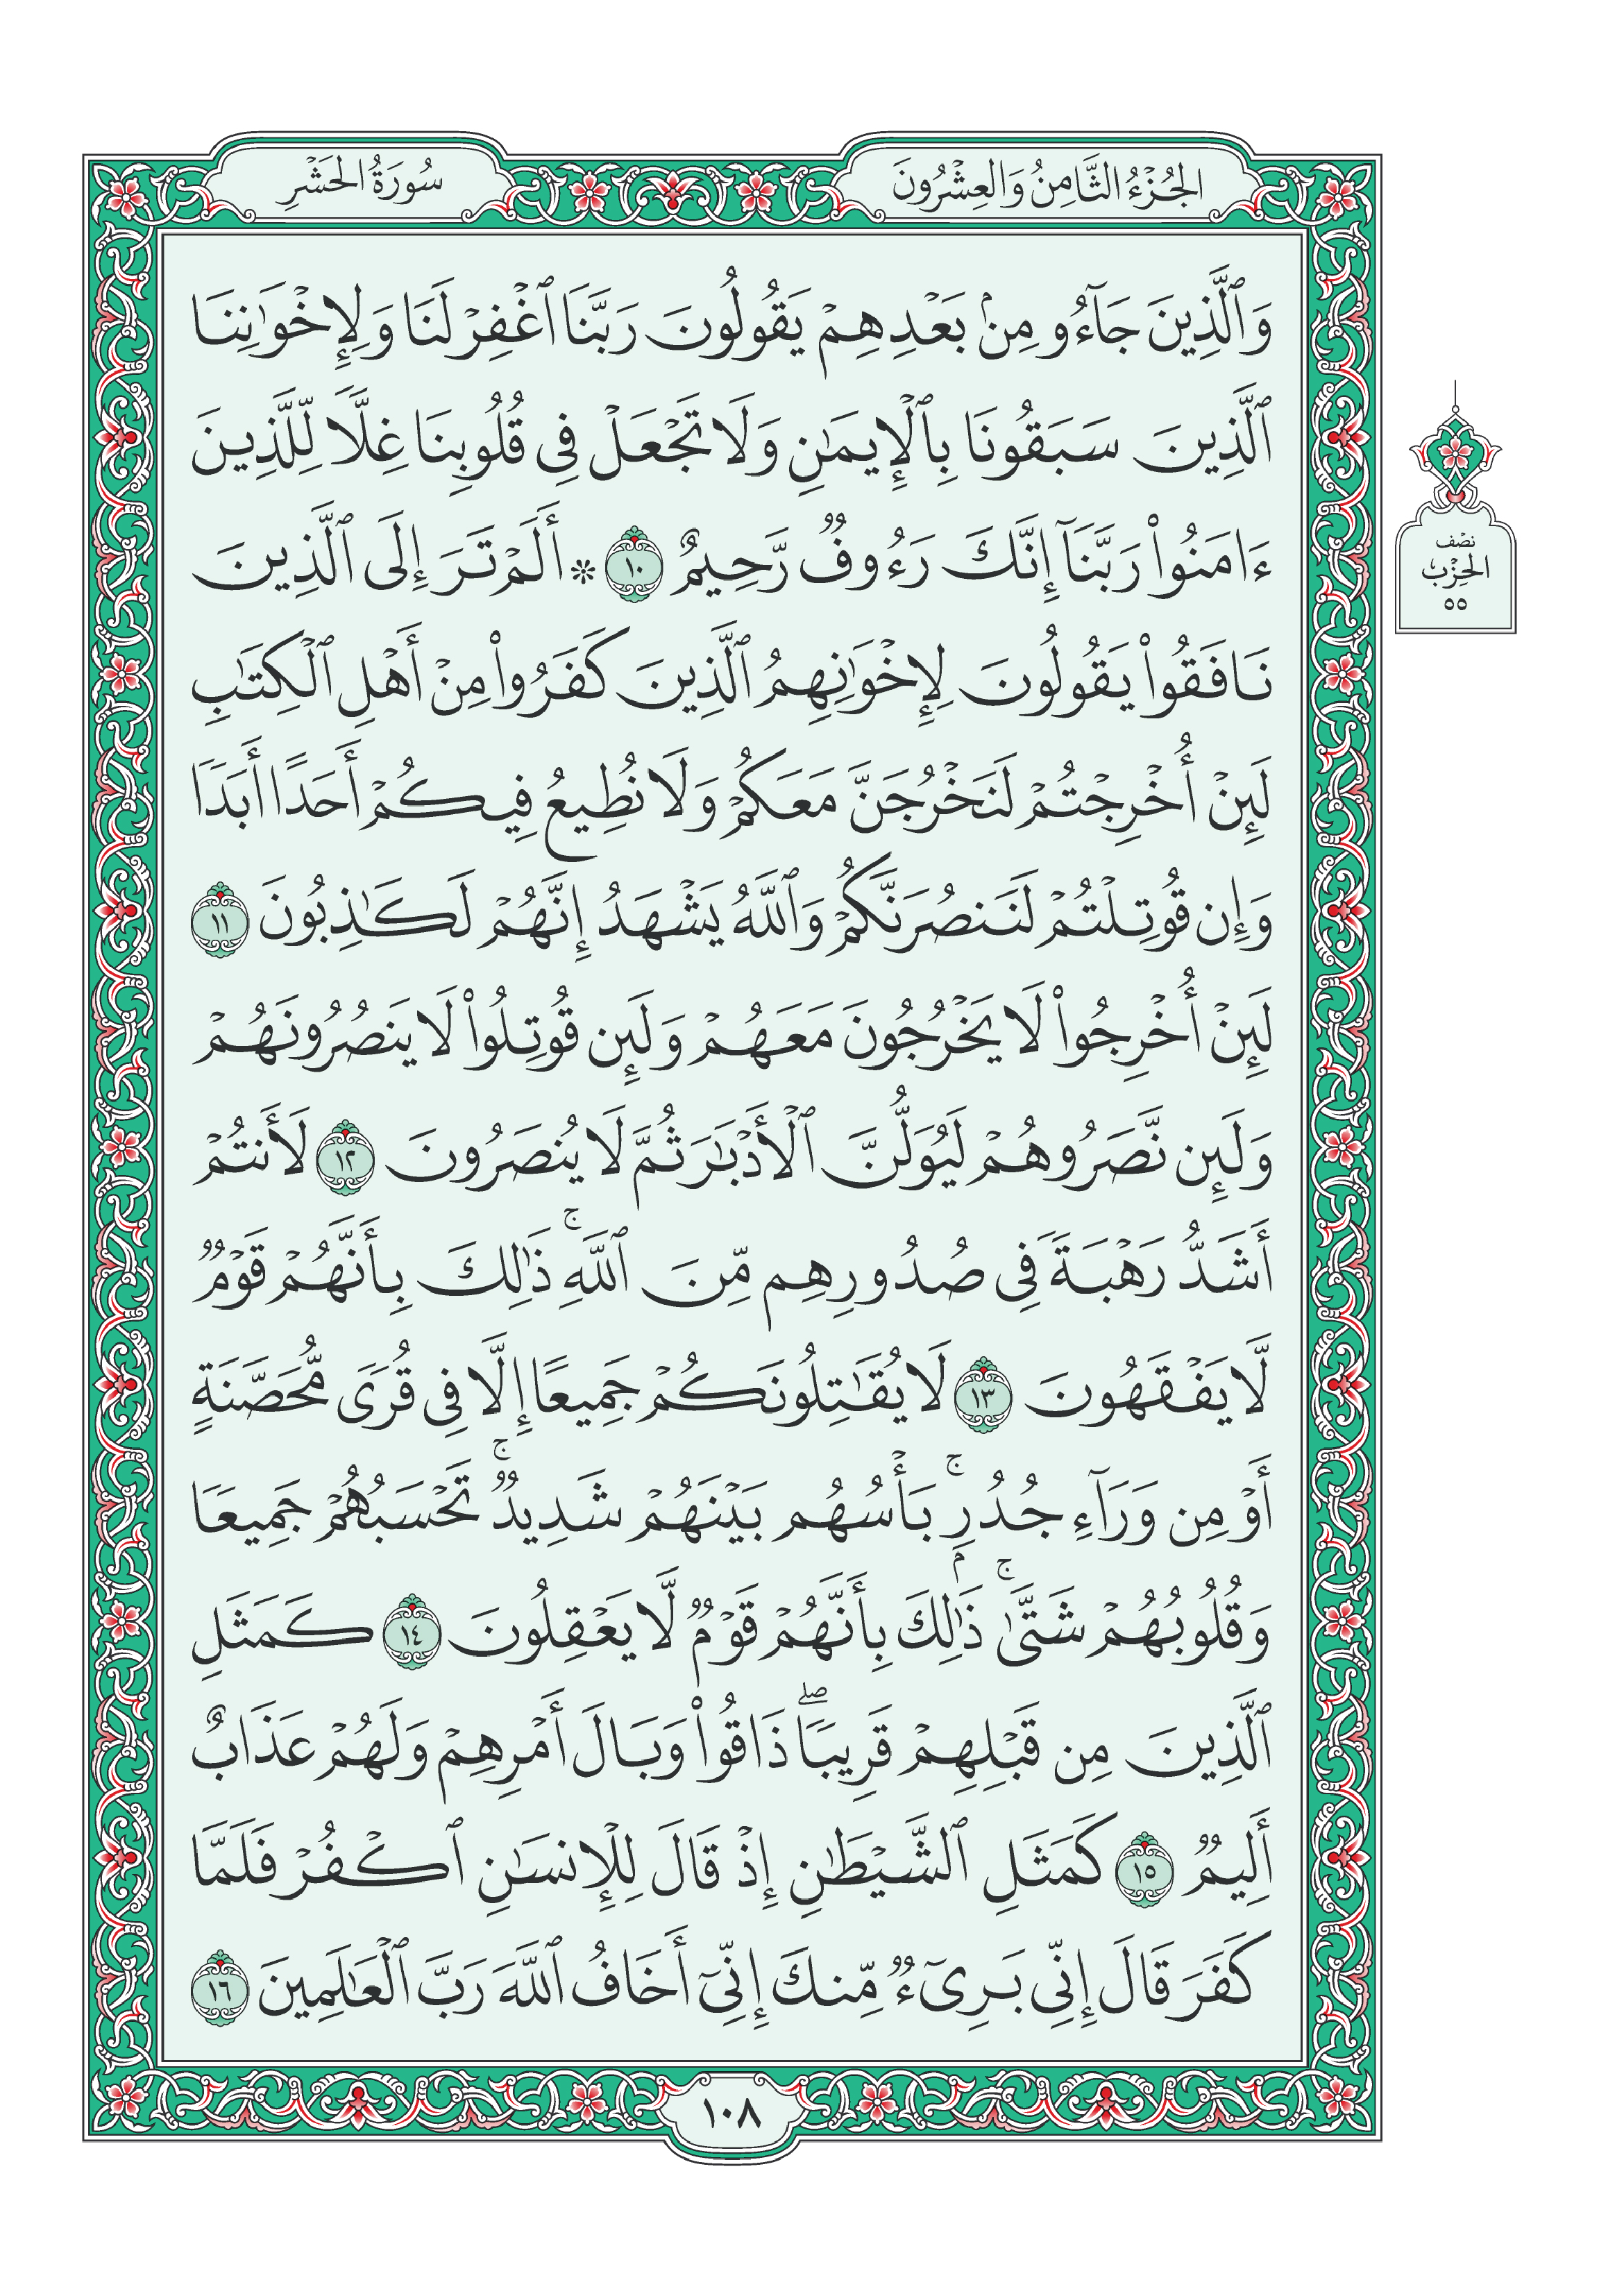 الجُزْءُ الثَّامِنُ وَالعِشْرُونَ
سُورَةُ الحَشْرِ
وَٱلَّذِينَ جَآءُو مِنۢ بَعْدِهِمْ يَقُولُونَ رَبَّنَا ٱغْفِرْ لَنَا وَلِإِخْوَٰنِنَا
ٱلَّذِينَ سَبَقُونَا بِٱلْإِيمَٰنِ وَلَا تَجْعَلْ فِى قُلُوبِنَا غِلًّا لِّلَّذِينَ
ءَامَنُوا۟ رَبَّنَآ إِنَّكَ رَءُوفٌ رَّحِيمٌ ١٠ ۞ أَلَمْ تَرَ إِلَى ٱلَّذِينَ
نَافَقُوا۟ يَقُولُونَ لِإِخْوَٰنِهِمُ ٱلَّذِينَ كَفَرُوا۟ مِنْ أَهْلِ ٱلْكِتَٰبِ
لَئِنْ أُخْرِجْتُمْ لَنَخْرُجَنَّ مَعَكُمْ وَلَا نُطِيعُ فِيكُمْ أَحَدًا أَبَدًا
وَإِن قُوتِلْتُمْ لَنَنصُرَنَّكُمْ وَٱللَّهُ يَشْهَدُ إِنَّهُمْ لَكَٰذِبُونَ ١١
لَئِنْ أُخْرِجُوا۟ لَا يَخْرُجُونَ مَعَهُمْ وَلَئِن قُوتِلُوا۟ لَا يَنصُرُونَهُمْ
وَلَئِن نَّصَرُوهُمْ لَيُوَلُّنَّ ٱلْأَدْبَٰرَ ثُمَّ لَا يُنصَرُونَ ١٢ لَأَنتُمْ
أَشَدُّ رَهْبَةً فِى صُدُورِهِم مِّنَ ٱللَّهِ ۚ ذَٰلِكَ بِأَنَّهُمْ قَوْمٌ
لَّا يَفْقَهُونَ ١٣ لَا يُقَٰتِلُونَكُمْ جَمِيعًا إِلَّا فِى قُرًى مُّحَصَّنَةٍ
أَوْ مِن وَرَآءِ جُدُرٍۭ ۚ بَأْسُهُم بَيْنَهُمْ شَدِيدٌ ۚ تَحْسَبُهُمْ جَمِيعًا
وَقُلُوبُهُمْ شَتَّىٰ ۚ ذَٰلِكَ بِأَنَّهُمْ قَوْمٌ لَّا يَعْقِلُونَ ١٤ كَمَثَلِ
ٱلَّذِينَ مِن قَبْلِهِمْ قَرِيبًا ۖ ذَاقُوا۟ وَبَالَ أَمْرِهِمْ وَلَهُمْ عَذَابٌ
أَلِيمٌ ١٥ كَمَثَلِ ٱلشَّيْطَٰنِ إِذْ قَالَ لِلْإِنسَٰنِ ٱكْفُرْ فَلَمَّا
كَفَرَ قَالَ إِنِّى بَرِىٓءٌ مِّنكَ إِنِّىٓ أَخَافُ ٱللَّهَ رَبَّ ٱلْعَٰلَمِينَ ١٦
نصف
الحِزْب
٥٥
١٠٨